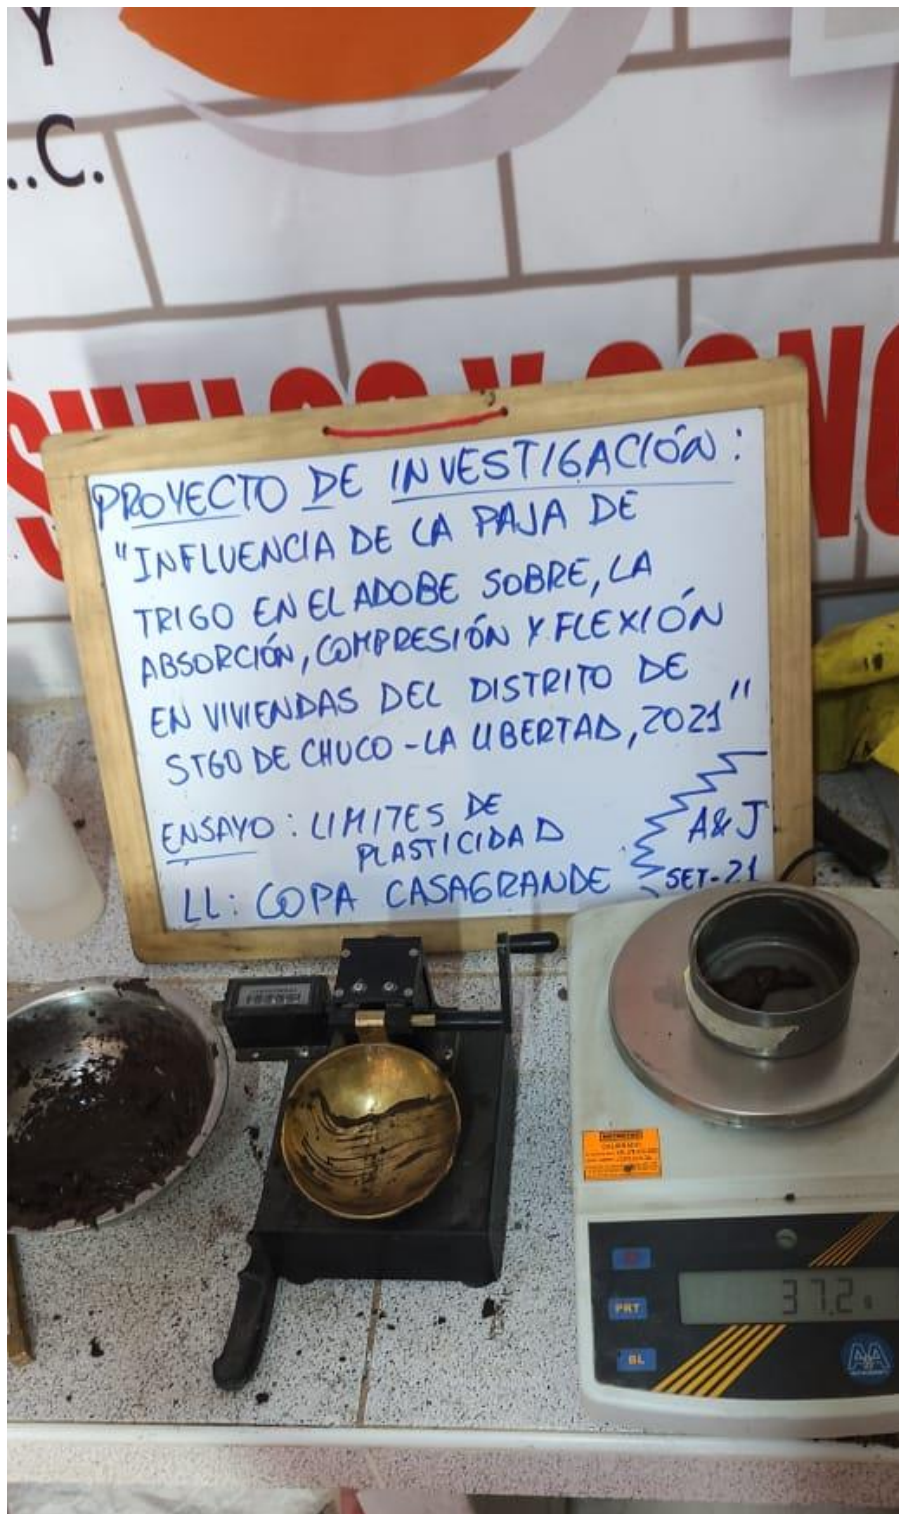 Y
..C.
SUELOS Y CONC
PROYECTO DE INVESTIGACIÓN:
"INFLUENCIA DE LA PAJA DE
TRIGO EN EL ADOBE SOBRE, LA
ABSORCIÓN, COMPRESIÓN Y FLEXIÓN
EN VIVIENDAS DEL DISTRITO DE
STGO DE CHUCO - LA LIBERTAD, 2021"
ENSAYO: LIMITES DE
PLASTICIDAD
A&J
LL: COPA CASAGRANDE
SET-21
37.2 g
PRT
BL